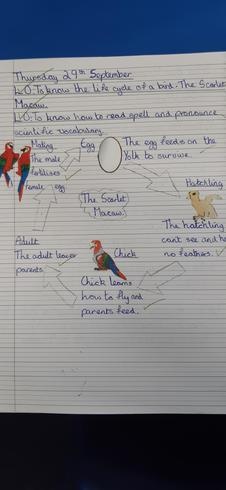 Thursday 29th September
L.O: To know the life cycle of a bird - The Scarlet
Macaw.
L.O: To know how to read, spell and pronounce
scientific vocabulary.
Mating
The male
fertilises
female egg
Egg
The egg feeds on the
Yolk to survive.
Hatchling
The hatchling
can't see and ha
no feathers.
The Scarlet
Macaw.
Chick
Chick learns
how to fly and
parents feed.
Adult
The adult leaves
parents